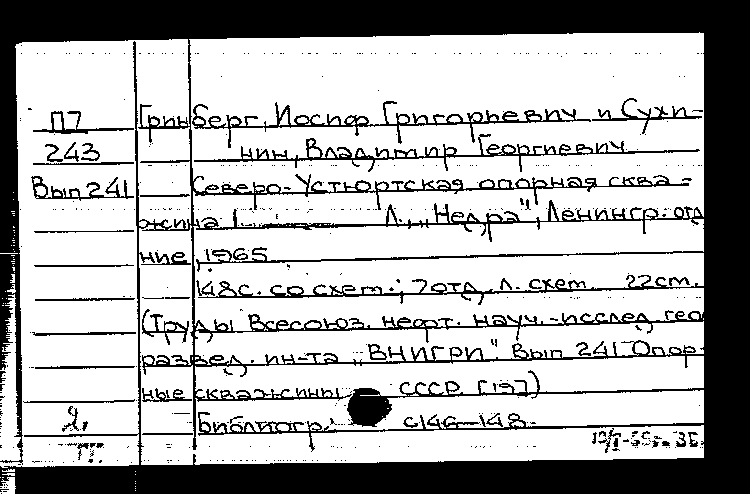 П7 Гринберг, Иосиф Григорьевич и Сухи-
243 нин, Владимир Георгиевич
Вып 241 Северо-Устюртская опорная сква-
жина 1 Л., „Недра", Ленингр. отд
ние, 1965
148с. со схем.; 7 отд. л. схем. 22см.
(Труды Всесоюз. нефт. науч.-исслед. гео
развед. ин-та „ВНИГРИ". Вып 241 Опор-
ные скважины СССР. [19])
2. Библиогр. с 146-148.